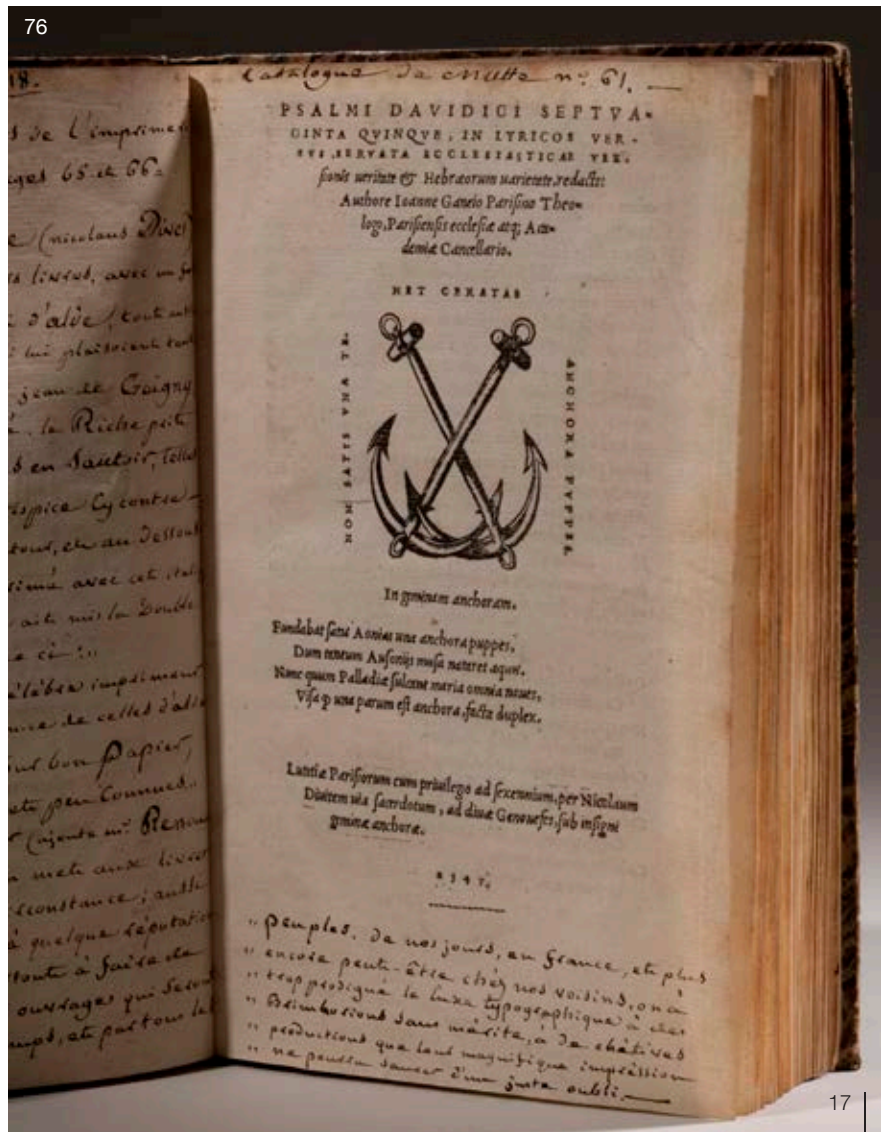 76
18.
s de l'imprimeu
ages 65 et 66=
e (nicolaus Dives)
s livres, avec un
d'alde, tout
lui plaisoient tant
jean de Gaigny
le Riche prit
s en Sautoir, telles
rospice Cy contre
tour, et au dessous
rimé avec cet ital
ait mis la Double
e ci:..
élèbre imprimeur
de celles d'alde
sur bon Papier,
et peu Connues..
(ajoute mr. Renou
met aux livres
irconstance; aussi
à quelque réputation
toute à faire de
ouvrages qui Seront
mps, et partout le
Catalogue de Mutte no. 61. —
PSALMI DAVIDICI SEPTVA-
GINTA QVINQVE, IN LYRICOS VER-
SVS, SERVATA ECCLESIASTICAE VER-
sionis ueritate & Hebræorum uarietate, redacti:
Authore Ioanne Ganeio Parisino Theo-
logo, Parisiensis ecclesiæ atq; Aca-
demiæ Cancellario.
NET CERATAS
NON SATIS VNA TE.
ANCHORA PVPPES.
In geminam anchoram.
Fundabat sanè Aonias una anchora puppes,
Dum tenuem Ausonijs musa nataret aquis.
Nunc quum Palladiæ sulcent maria omnia naues,
Visa q̃ una parum est anchora, facta duplex.
Lutetiæ Parisiorum cum priuilegio ad sexennium, per Nicolaum
Diuitem uia sacerdotum, ad diuæ Genouefes, sub insigni
geminæ anchoræ.
1547.
" peuples. De nos jours, en France, et plus
" encore peut-être chéz nos voisins, on a
" trop prodigué le luxe typographique à des
" Brimborions sans mérite, à de chétives
" productions que leur magnifique impression
" ne pourra sauver d'un juste oubli. —
17